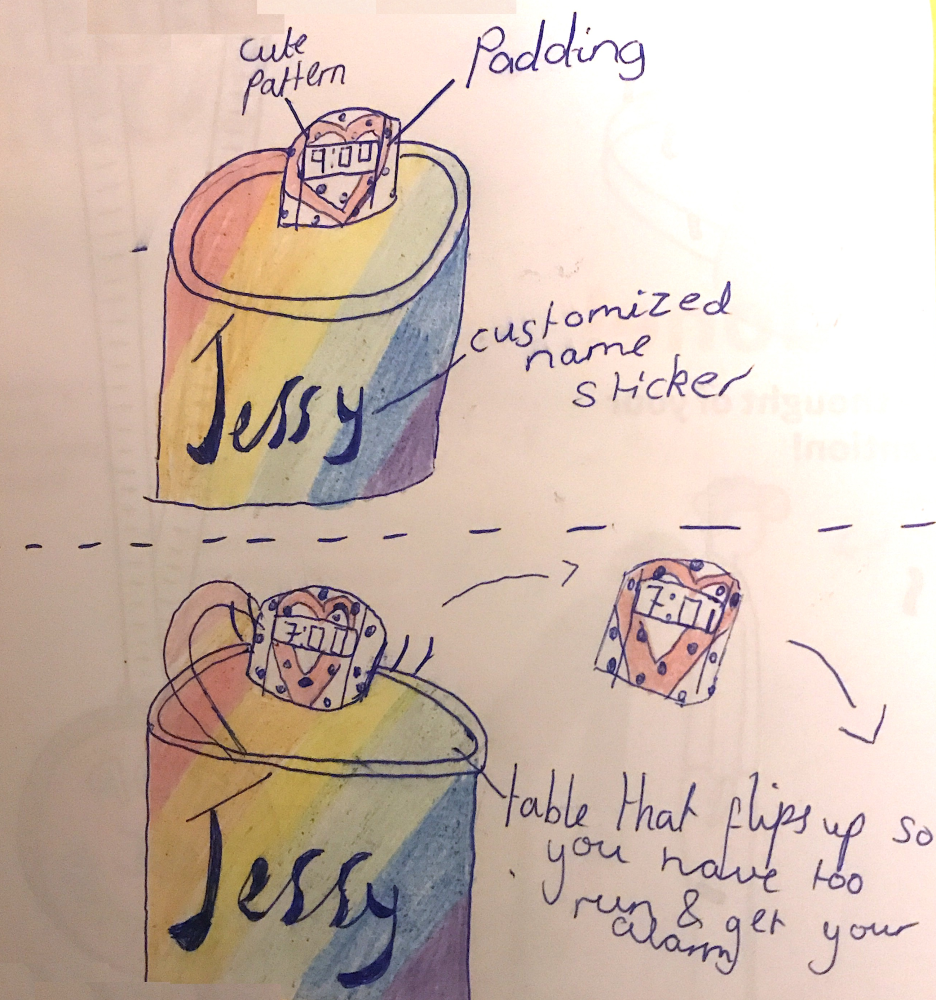 cute
pattern
Padding
9:00
Jessy
customized
name
sticker
7:01
7:01
Jessy
table that flips up so
you have too
run & get your
alarm